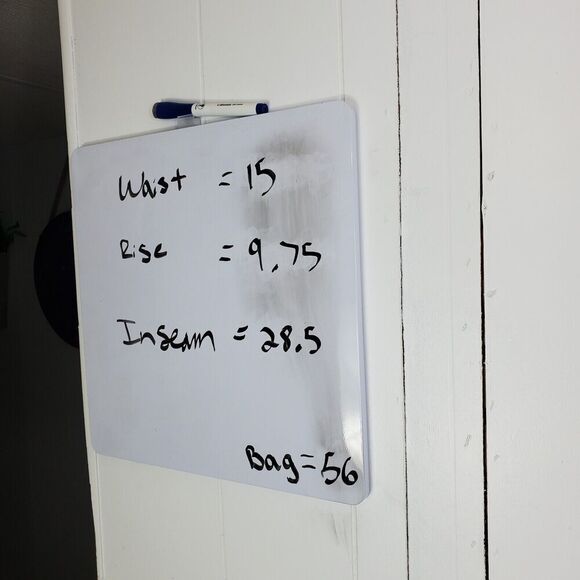 Waist = 15
Rise = 9.75
Inseam = 28.5
Bag = 56